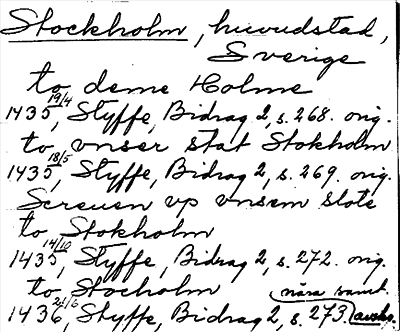 Stockholm, huvudstad,
Sverige
to deme Holme
1435 19/4, Styffe, Bidrag 2, s. 268. orig.
to vnser stat Stokholm
1435 18/5, Styffe, Bidrag 2, s. 269. orig.
Screuen vp vnsem slote
to Stokholm
1435 14/10, Styffe, Bidrag 2, s. 272. orig.
to Stocholm nära samt.
1436 24/6, Styffe, Bidrag 2, s. 273. avskr.